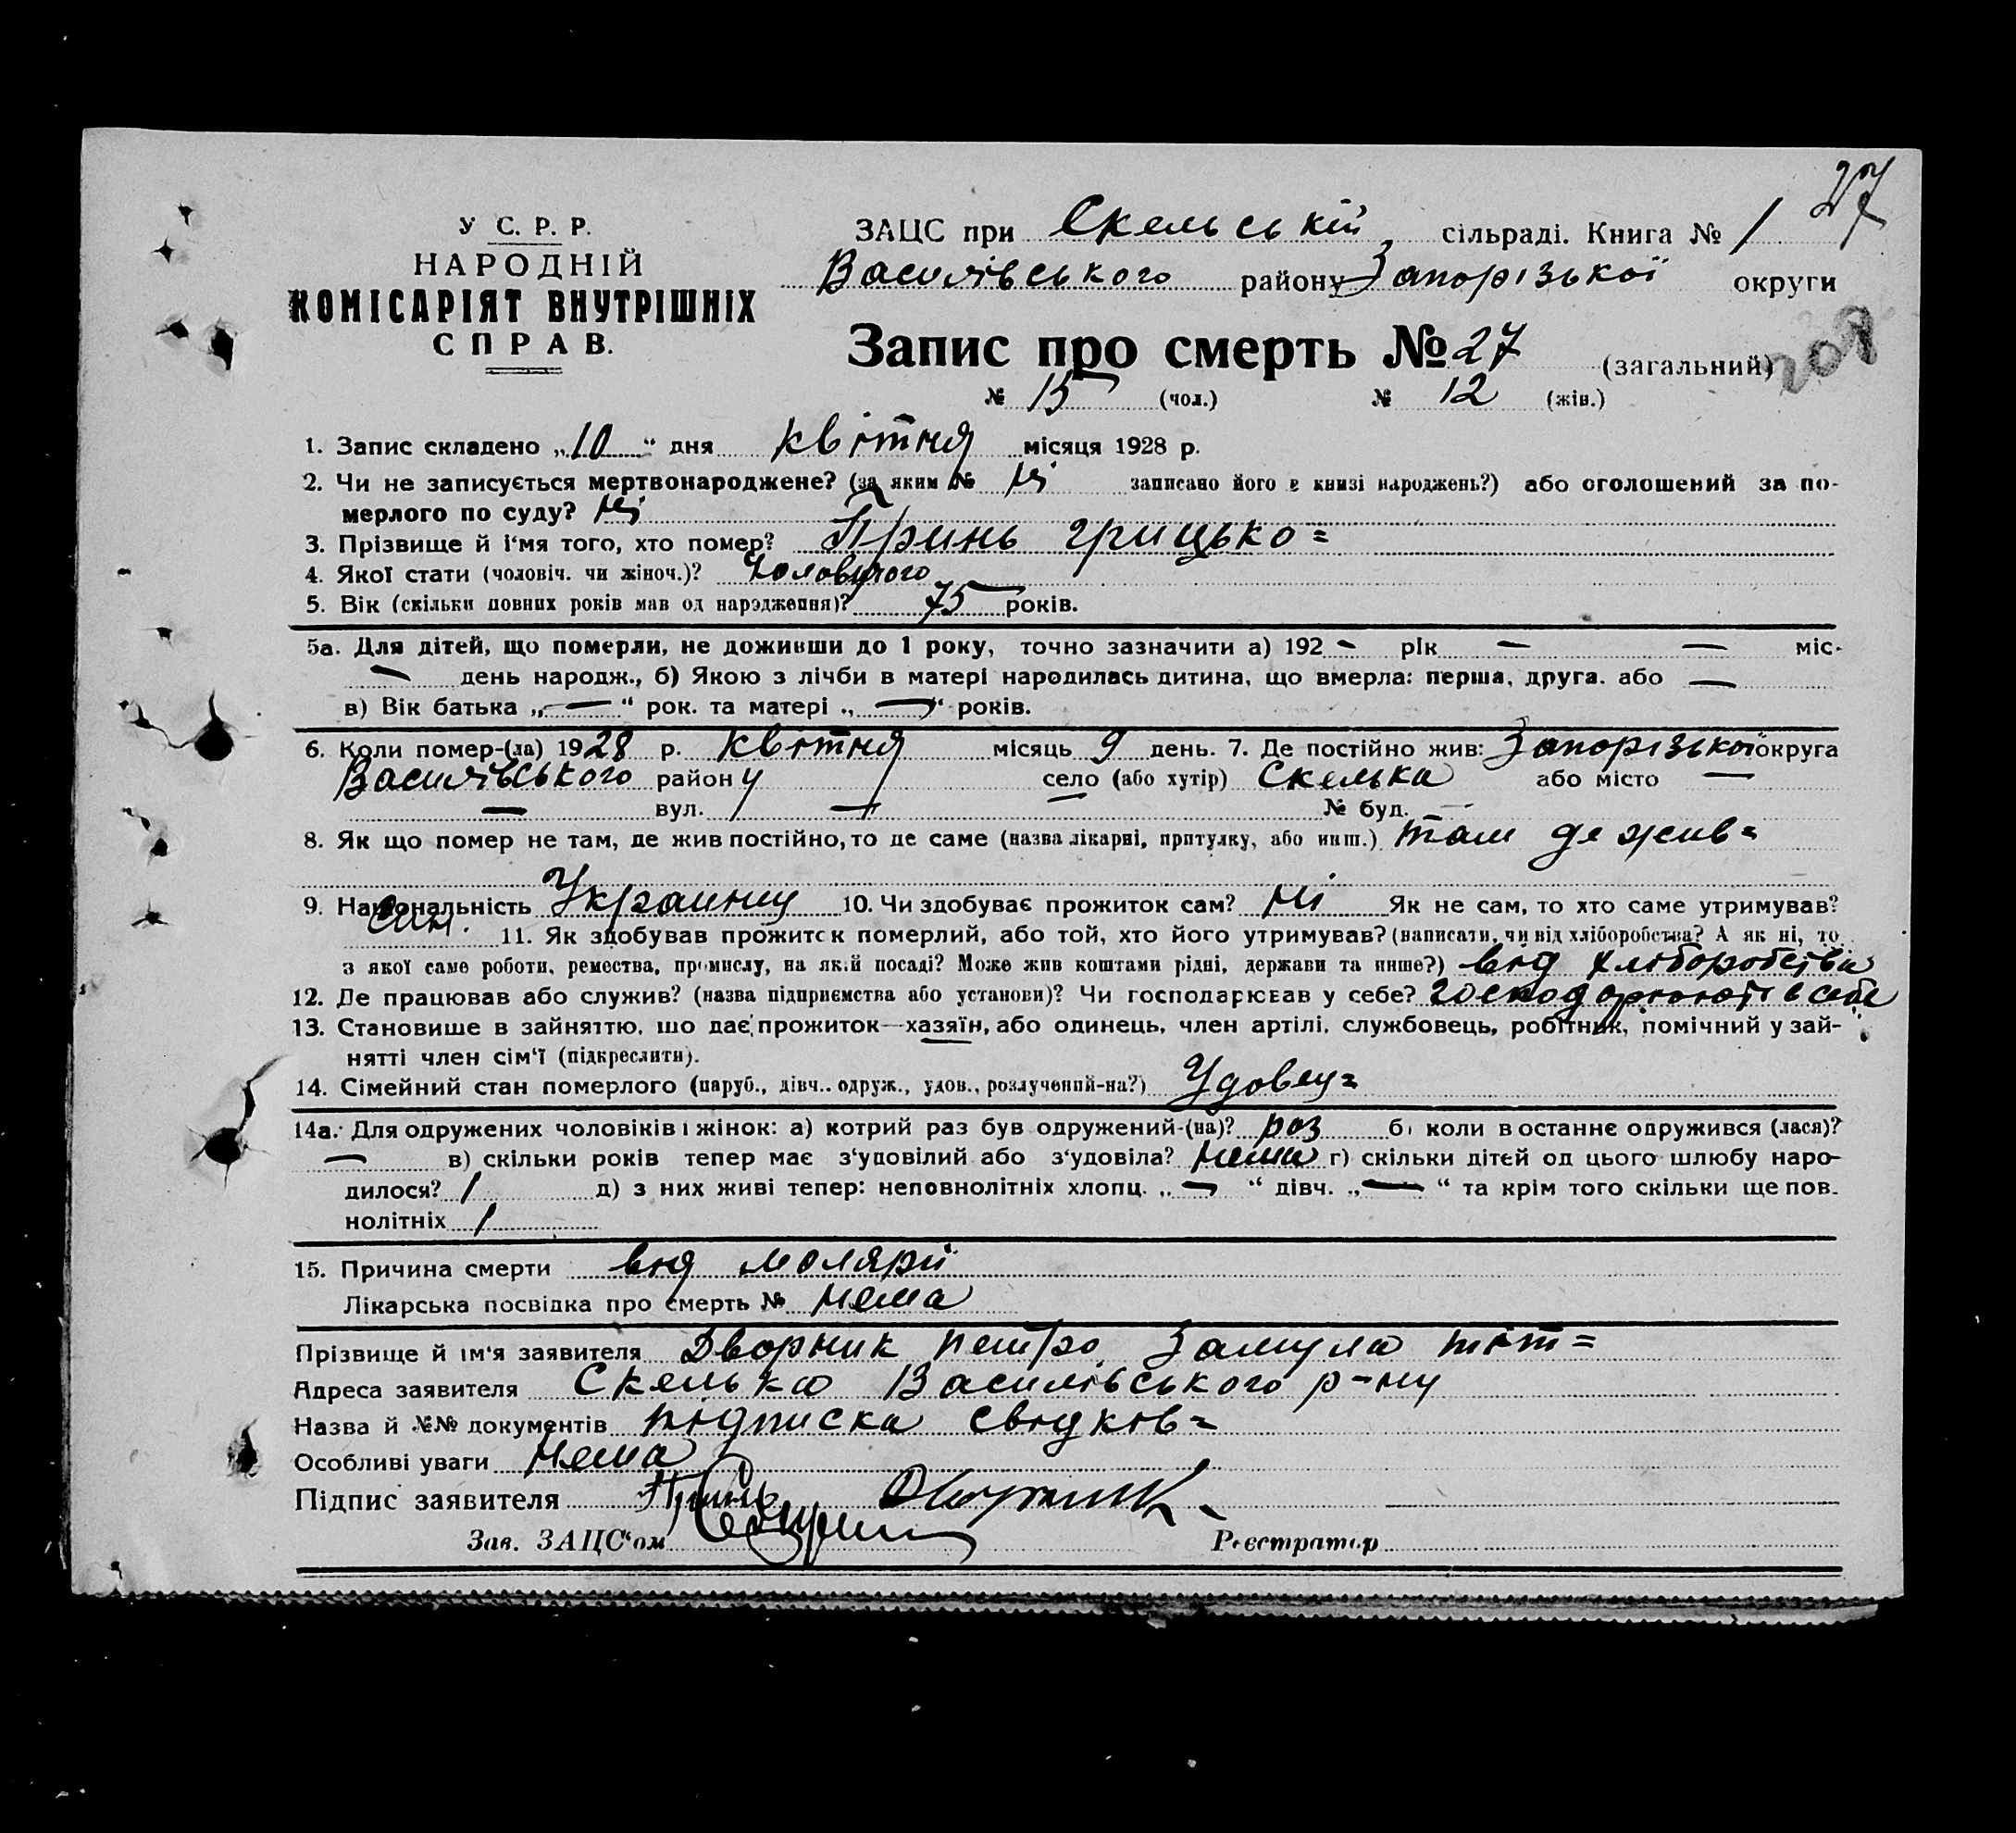 27
У С. Р. Р.
НАРОДНІЙ
КОМІСАРІЯТ ВНУТРІШНІХ
СПРАВ.
ЗАЦС при Скельській сільраді. Книга № 1
Василівського району Запорізької округи
Запис про смерть № 27 (загальний)
№ 15 (чол.) № 12 (жін.)
1. Запис складено „10“ дня квітня місяця 1928 р.
2. Чи не записується мертвонароджене? (за яким № ні записано його в книзі народжень?) або оголошений за по-
мерлого по суду? ні
3. Прізвище й і'мя того, хто помер? Принь грицько =
4. Якої стати (чоловіч. чи жіноч.)? Чоловічого
5. Вік (скільки повних років мав од народження)? 75 років.
5а. Для дітей, що померли, не доживши до 1 року, точно зазначити а) 192 — рік — — міс-
— день народж., б) Якою з лічби в матері народилась дитина, що вмерла: перша, друга. або —
в) Вік батька „—“ рок. та матері „—“ років.
6. Коли помер-(ла) 1928 р. квітня місяць 9 день. 7. Де постійно жив: Запорізької округа
Василівського району село (або хутір) Скелька або місто —
— вул. — № буд. —
8. Як що помер не там, де жив постійно, то де саме (назва лікарні, притулку, або инш.) там де жив =
9. Національність Украинец 10. Чи здобуває прожиток сам? ні Як не сам, то хто саме утримував?
Син. 11. Як здобував прожиток померлий, або той, хто його утримував? (написати, чи від хліборобства? А як ні, то
з якої саме роботи, ремества, промислу, на якій посаді? Може жив коштами рідні, держави та инше?) від хліборобства
12. Де працював або служив? (назва підприємства або установи)? Чи господарював у себе? в себе
13. Становише в зайняттю, що дає прожиток—хазяїн, або одинець, член артілі, службовець, робітник, помічний у зай-
нятті член сім'ї (підкреслити).
14. Сімейний стан померлого (паруб., дівч.. одруж., удов., розлучений-на?) Удовец =
14а. Для одружених чоловіків і жінок: а) котрий раз був одружений-(на)? раз б) коли востаннє одружився (лася)?
— в) скільки років тепер має з'удовілий або з'удовіла? нема г) скільки дітей од цього шлюбу наро-
дилося? 1 д) з них живі тепер: неповнолітніх хлопц. „—“ дівч. „—“ та крім того скільки ще пов.
нолітніх 1
15. Причина смерти від молярії
Лікарська посвідка про смерть № нема
Прізвище й ім'я заявителя Дворник петро Замула тіт =
Адреса заявителя Скелька Василівського р-ну
Назва й №№ документів підписка свідків =
Особливі уваги нема
Підпис заявителя Принь Дворник
Зав. ЗАЦС'ом
Реєстратор